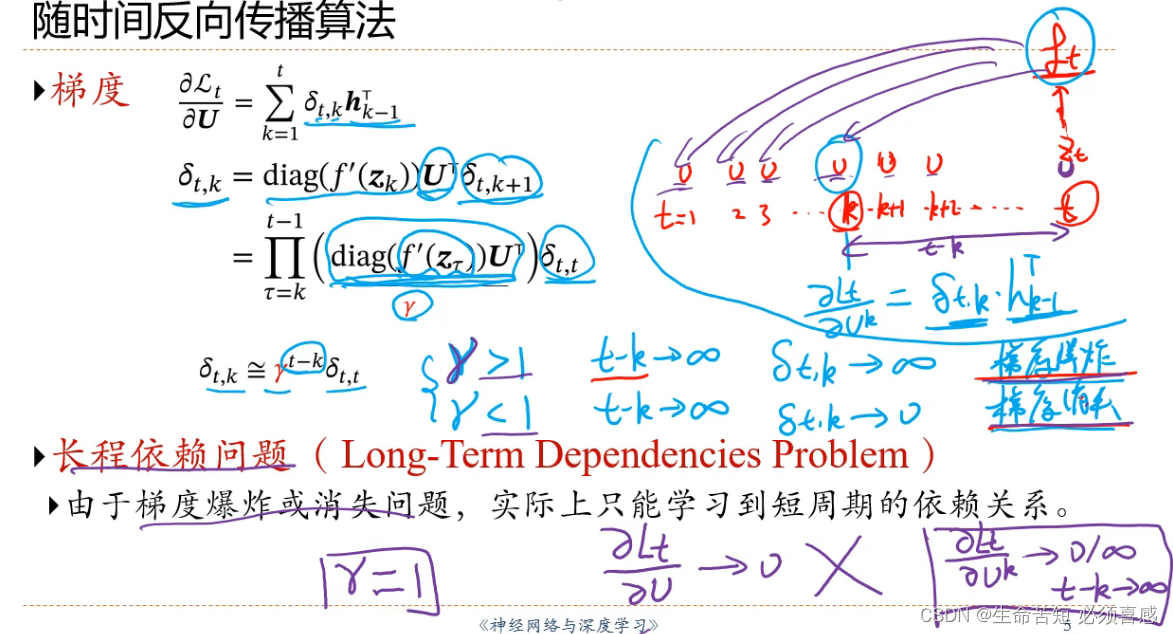 随时间反向传播算法
梯度 ∂ℒ_t/∂U = ∑_{k=1}^{t} δ_{t,k} h_{k-1}^⊤
δ_{t,k} = diag(f′(z_k))U^⊤δ_{t,k+1}
= ∏_{τ=k}^{t-1} (diag(f′(z_τ))U^⊤)δ_{t,t}
γ
δ_{t,k} ≅ γ^{t-k}δ_{t,t}
ℒt
zt
U U U U U U U
t=1 2 3 ... k k+1 k+2 ..... t
t-k
∂Lt/∂U^k = δt,k · h_{k-1}^T
γ > 1 t-k→∞ δt,k→∞ 梯度爆炸
γ < 1 t-k→∞ δt,k→0 梯度消失
长程依赖问题（Long-Term Dependencies Problem）
由于梯度爆炸或消失问题，实际上只能学习到短周期的依赖关系。
γ=1 ∂Lt/∂U → 0 ∂Lt/∂U^k → 0/∞
t-k→∞
《神经网络与深度学习》 5
CSDN @生命苦短 必须喜感